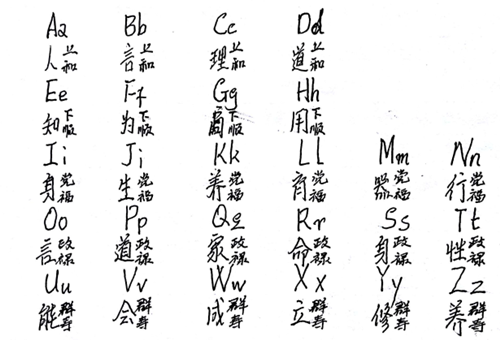 Aa Bb Cc Dd
人上和 言上和 理上和 道上和
Ee Ff Gg Hh
知下顺 为下顺 下顺 用下顺
Ii Jj Kk Ll Mm Nn
身党福 生党福 养党福 育党福 器党福 行党福
Oo Pp Qq Rr Ss Tt
言政禄 道政禄 家政禄 命政禄 身政禄 性政禄
Uu Vv Ww Xx Yy Zz
能群寿 会群寿 成群寿 立群寿 修群寿 养群寿